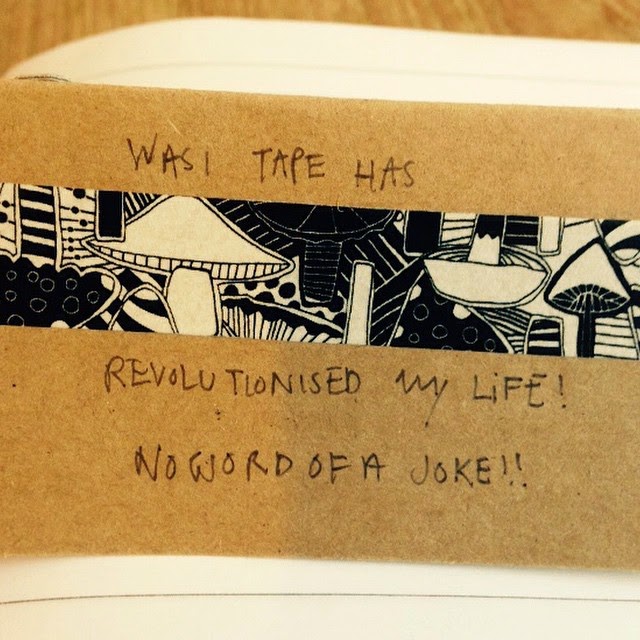 WASI TAPE HAS
REVOLUTIONISED MY LIFE!
NO WORD OF A JOKE!!